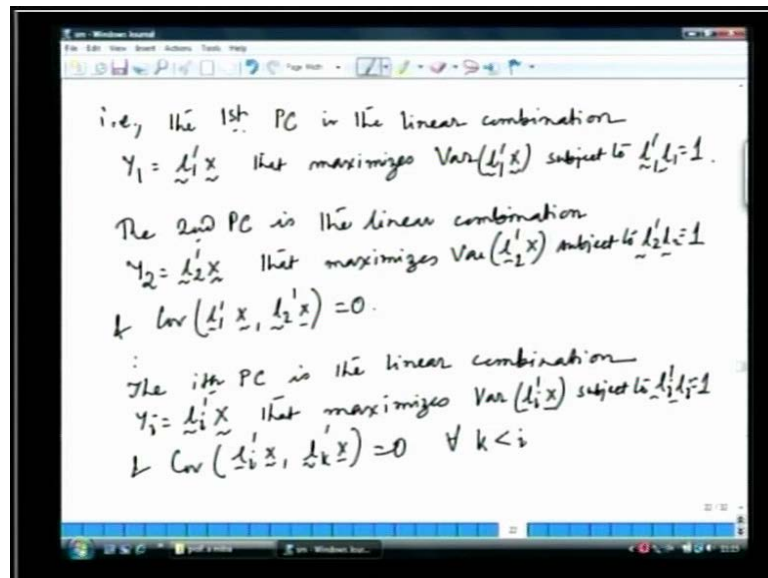 sm - Windows Journal
File Edit View Insert Actions Tools Help
Page Width
i.e., the 1st PC is the linear combination
Y₁ = l₁'x that maximizes Var(l₁'x) subject to l₁'l₁=1.
The 2nd PC is the linear combination
Y₂ = l₂'x that maximizes Var(l₂'x) subject to l₂'l₂=1
& Cov(l₁'x, l₂'x) = 0.
:
The ith PC is the linear combination
Yᵢ = lᵢ'x that maximizes Var(lᵢ'x) subject to lᵢ'lᵢ=1
& Cov(lᵢ'x, lₖ'x) = 0 ∀ k < i
22 / 22
22
sm - Windows Jour...